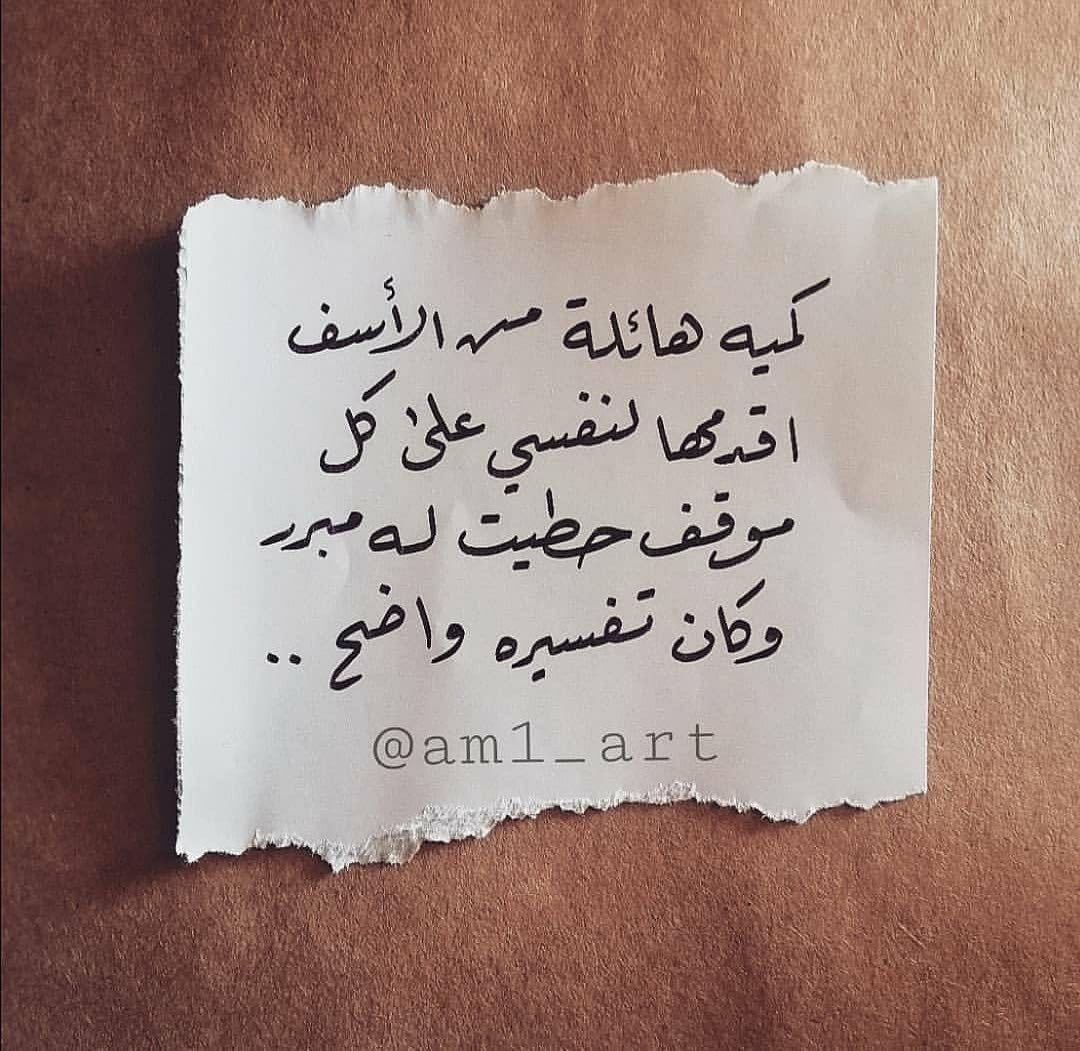 كميه هائلة من الأسف
اقدمها لنفسي على كل
موقف حطيت له مبرر
وكان تفسيره واضح ..
@am1_art